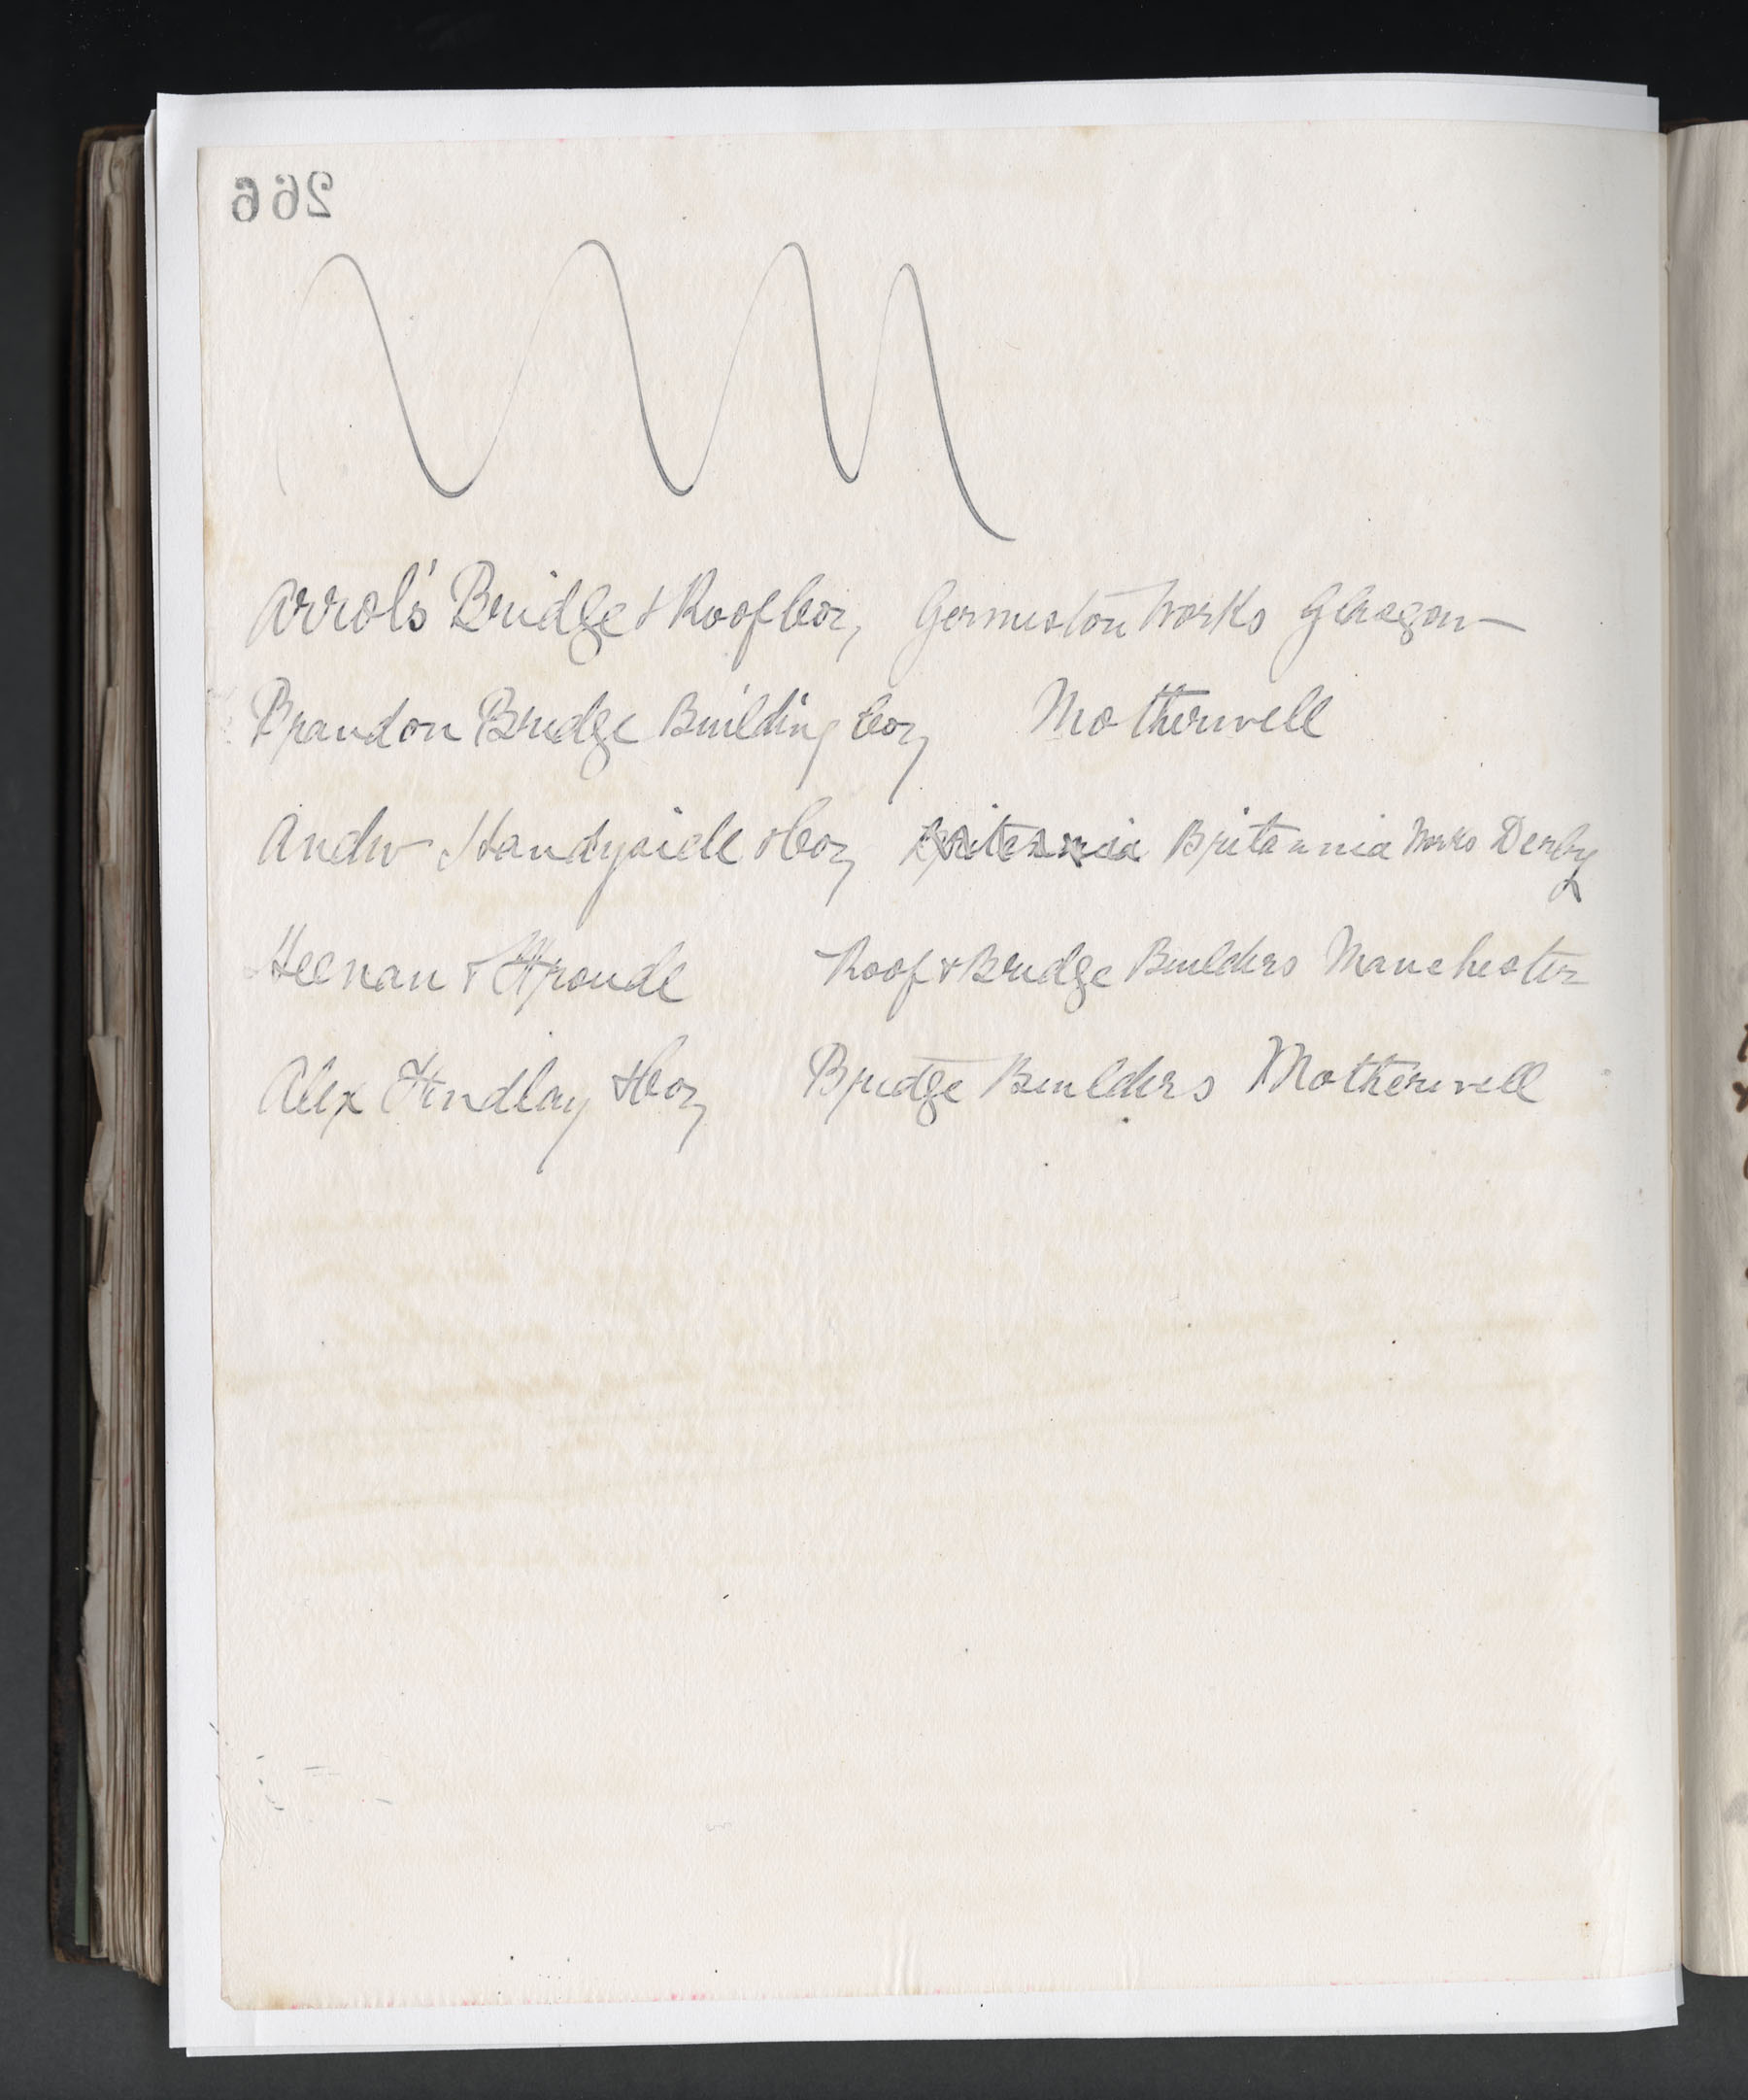 266
Arrol's Bridge & Roof Coy, Germiston Works Glasgow
Brandon Bridge Building Coy Motherwell
Andw Handyside & Coy Britannia Britannia Works Derby
Heenan & Froude Roof & Bridge Builders Manchester
Alex Findlay & Coy Bridge Builders Motherwell